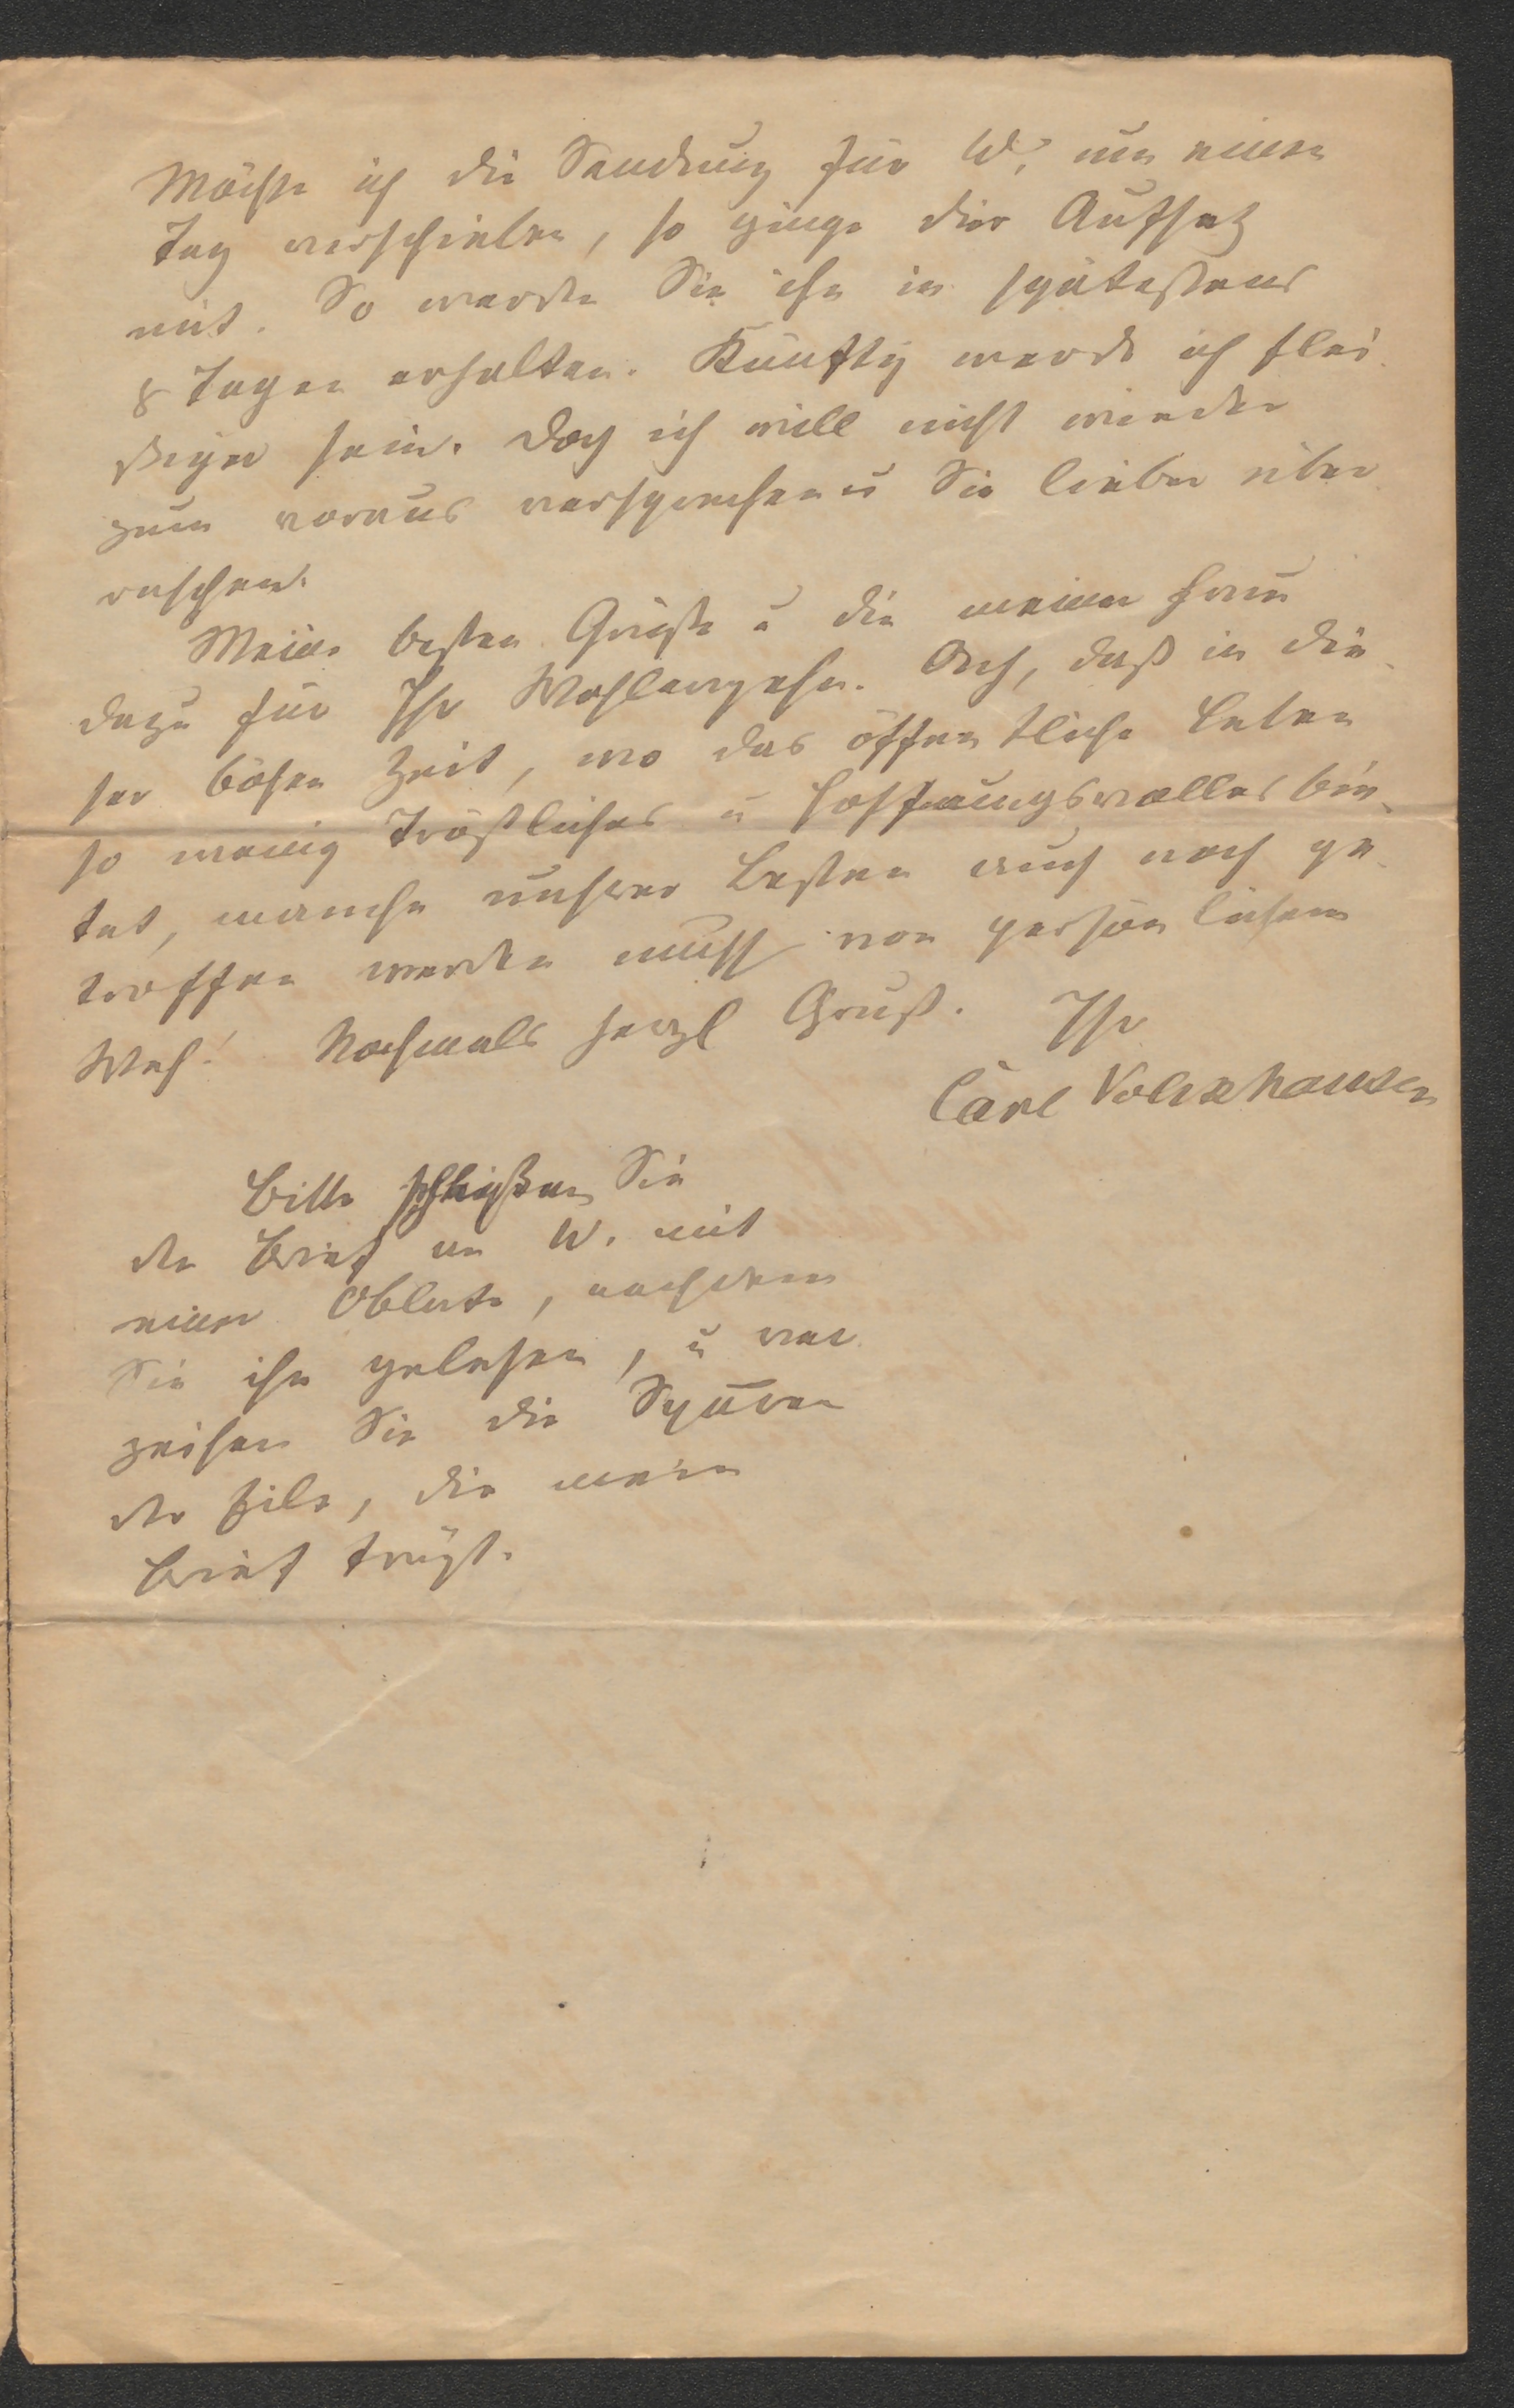 Möchte ich die Sendung für W. um einen
Tag verschieben, so ginge der Aufsatz
mit. So werden Sie ihn in spätestens
8 Tagen erhalten. Künftig werde ich flei-
ßiger sein. Doch ich will nicht wieder
zum voraus versprechen u Sie lieber über-
raschen.
Meine besten Grüße u die meiner Frau
dazu für Ihr Wohlergehn. Ach, daß in die-
ser bösen Zeit, wo das öffentliche Leben
so wenig Tröstliches u Hoffnungsvolles bie-
tet, manche unsrer Besten auch noch ge-
troffen werden muß von persönlichem
Weh! Nochmals herzl Gruß. Ihr
Carl Volkhausen
Bitte schließen Sie
den Brief an W. mit
einer Oblate, nachdem
Sie ihn gelesen, u ver-
zeihen Sie die Spuren
der Eile, die mein
Brief trägt.